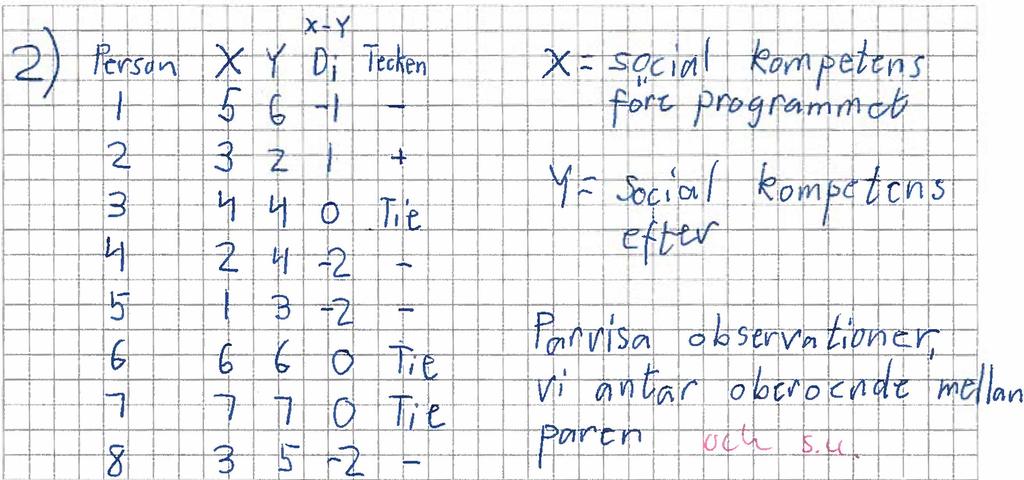 X-Y
2) Person X Y Di Tecken
1 5 6 -1 -
2 3 2 1 +
3 4 4 0 Tie
4 2 4 -2 -
5 1 3 -2 -
6 6 6 0 Tie
7 7 7 0 Tie
8 3 5 -2 -
X = social kompetens
före programmet
Y = social kompetens
efter
Parvisa observationer,
vi antar oberoende mellan
paren och s.u.